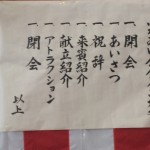 一、開会
一、あいさつ
一、祝辞
一、来賓紹介
一、献立紹介
一、アトラクション
一、閉会
以上